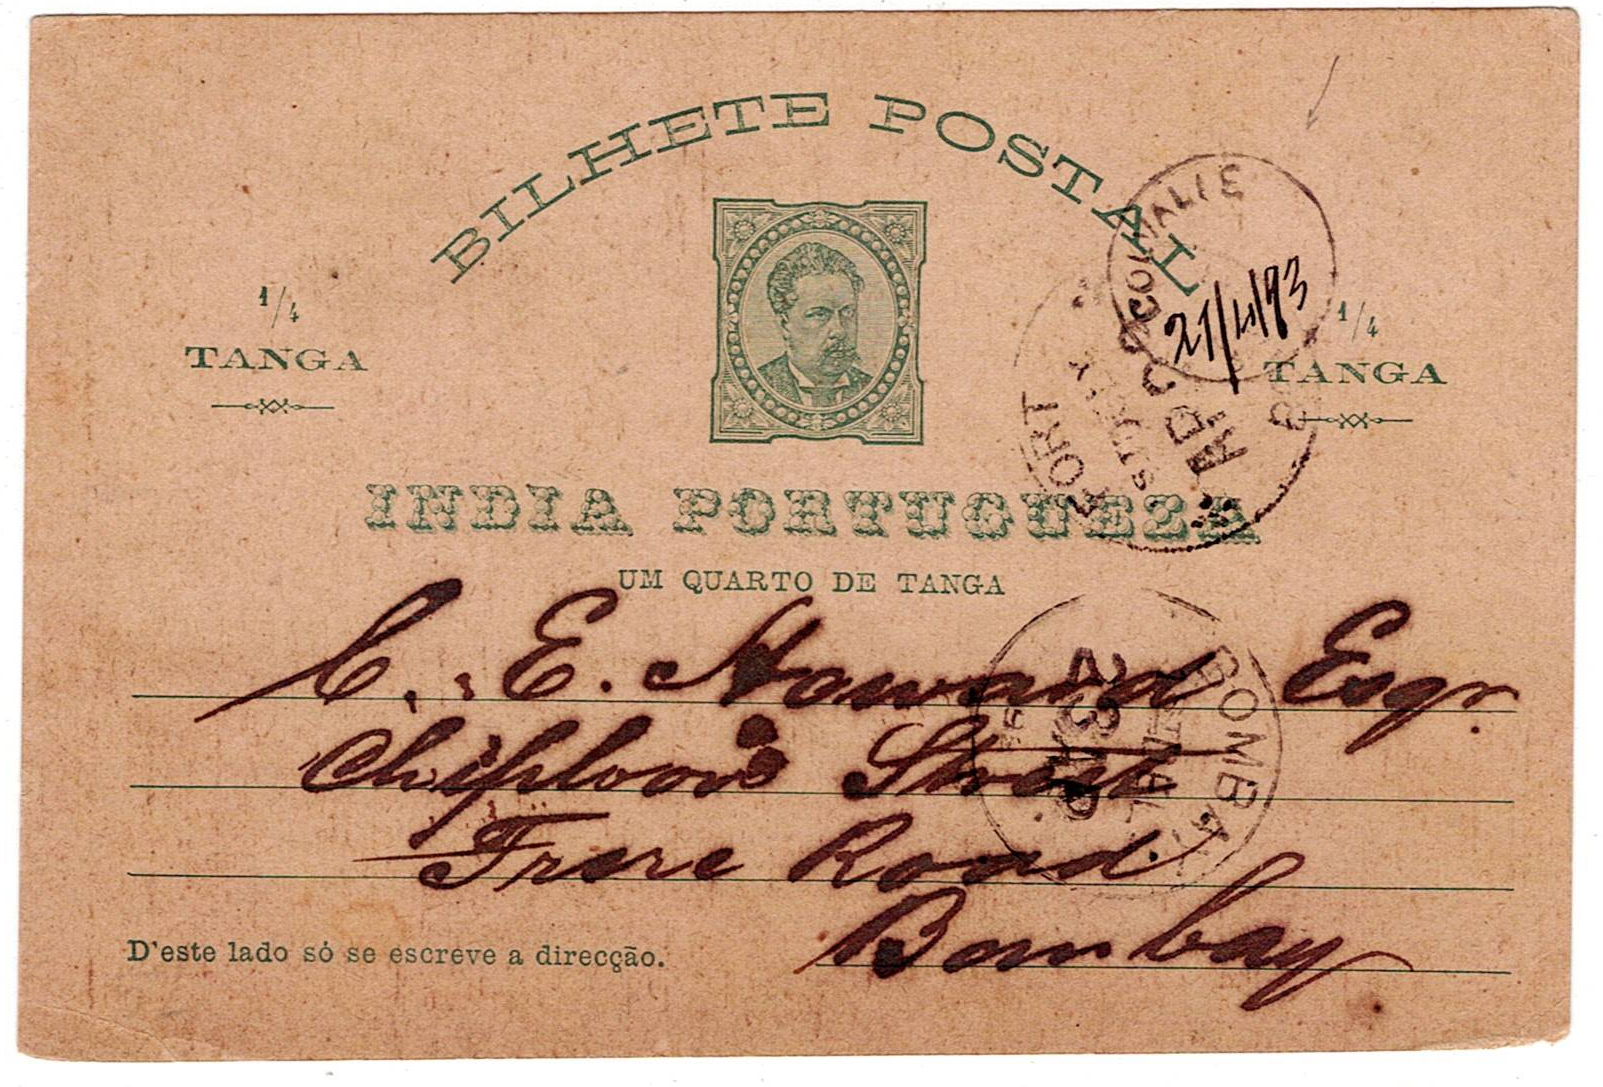 BILHETE POSTAL
1/4
TANGA
1/4
TANGA
COLVALIE
21/4/93
FORT
INDIA PORTUGUEZA
UM QUARTO DE TANGA
C. E. Howard Esqr.
Chiploon Street
Frere Road
Bombay
BOMBAY
23 AP
D'este lado só se escreve a direcção.